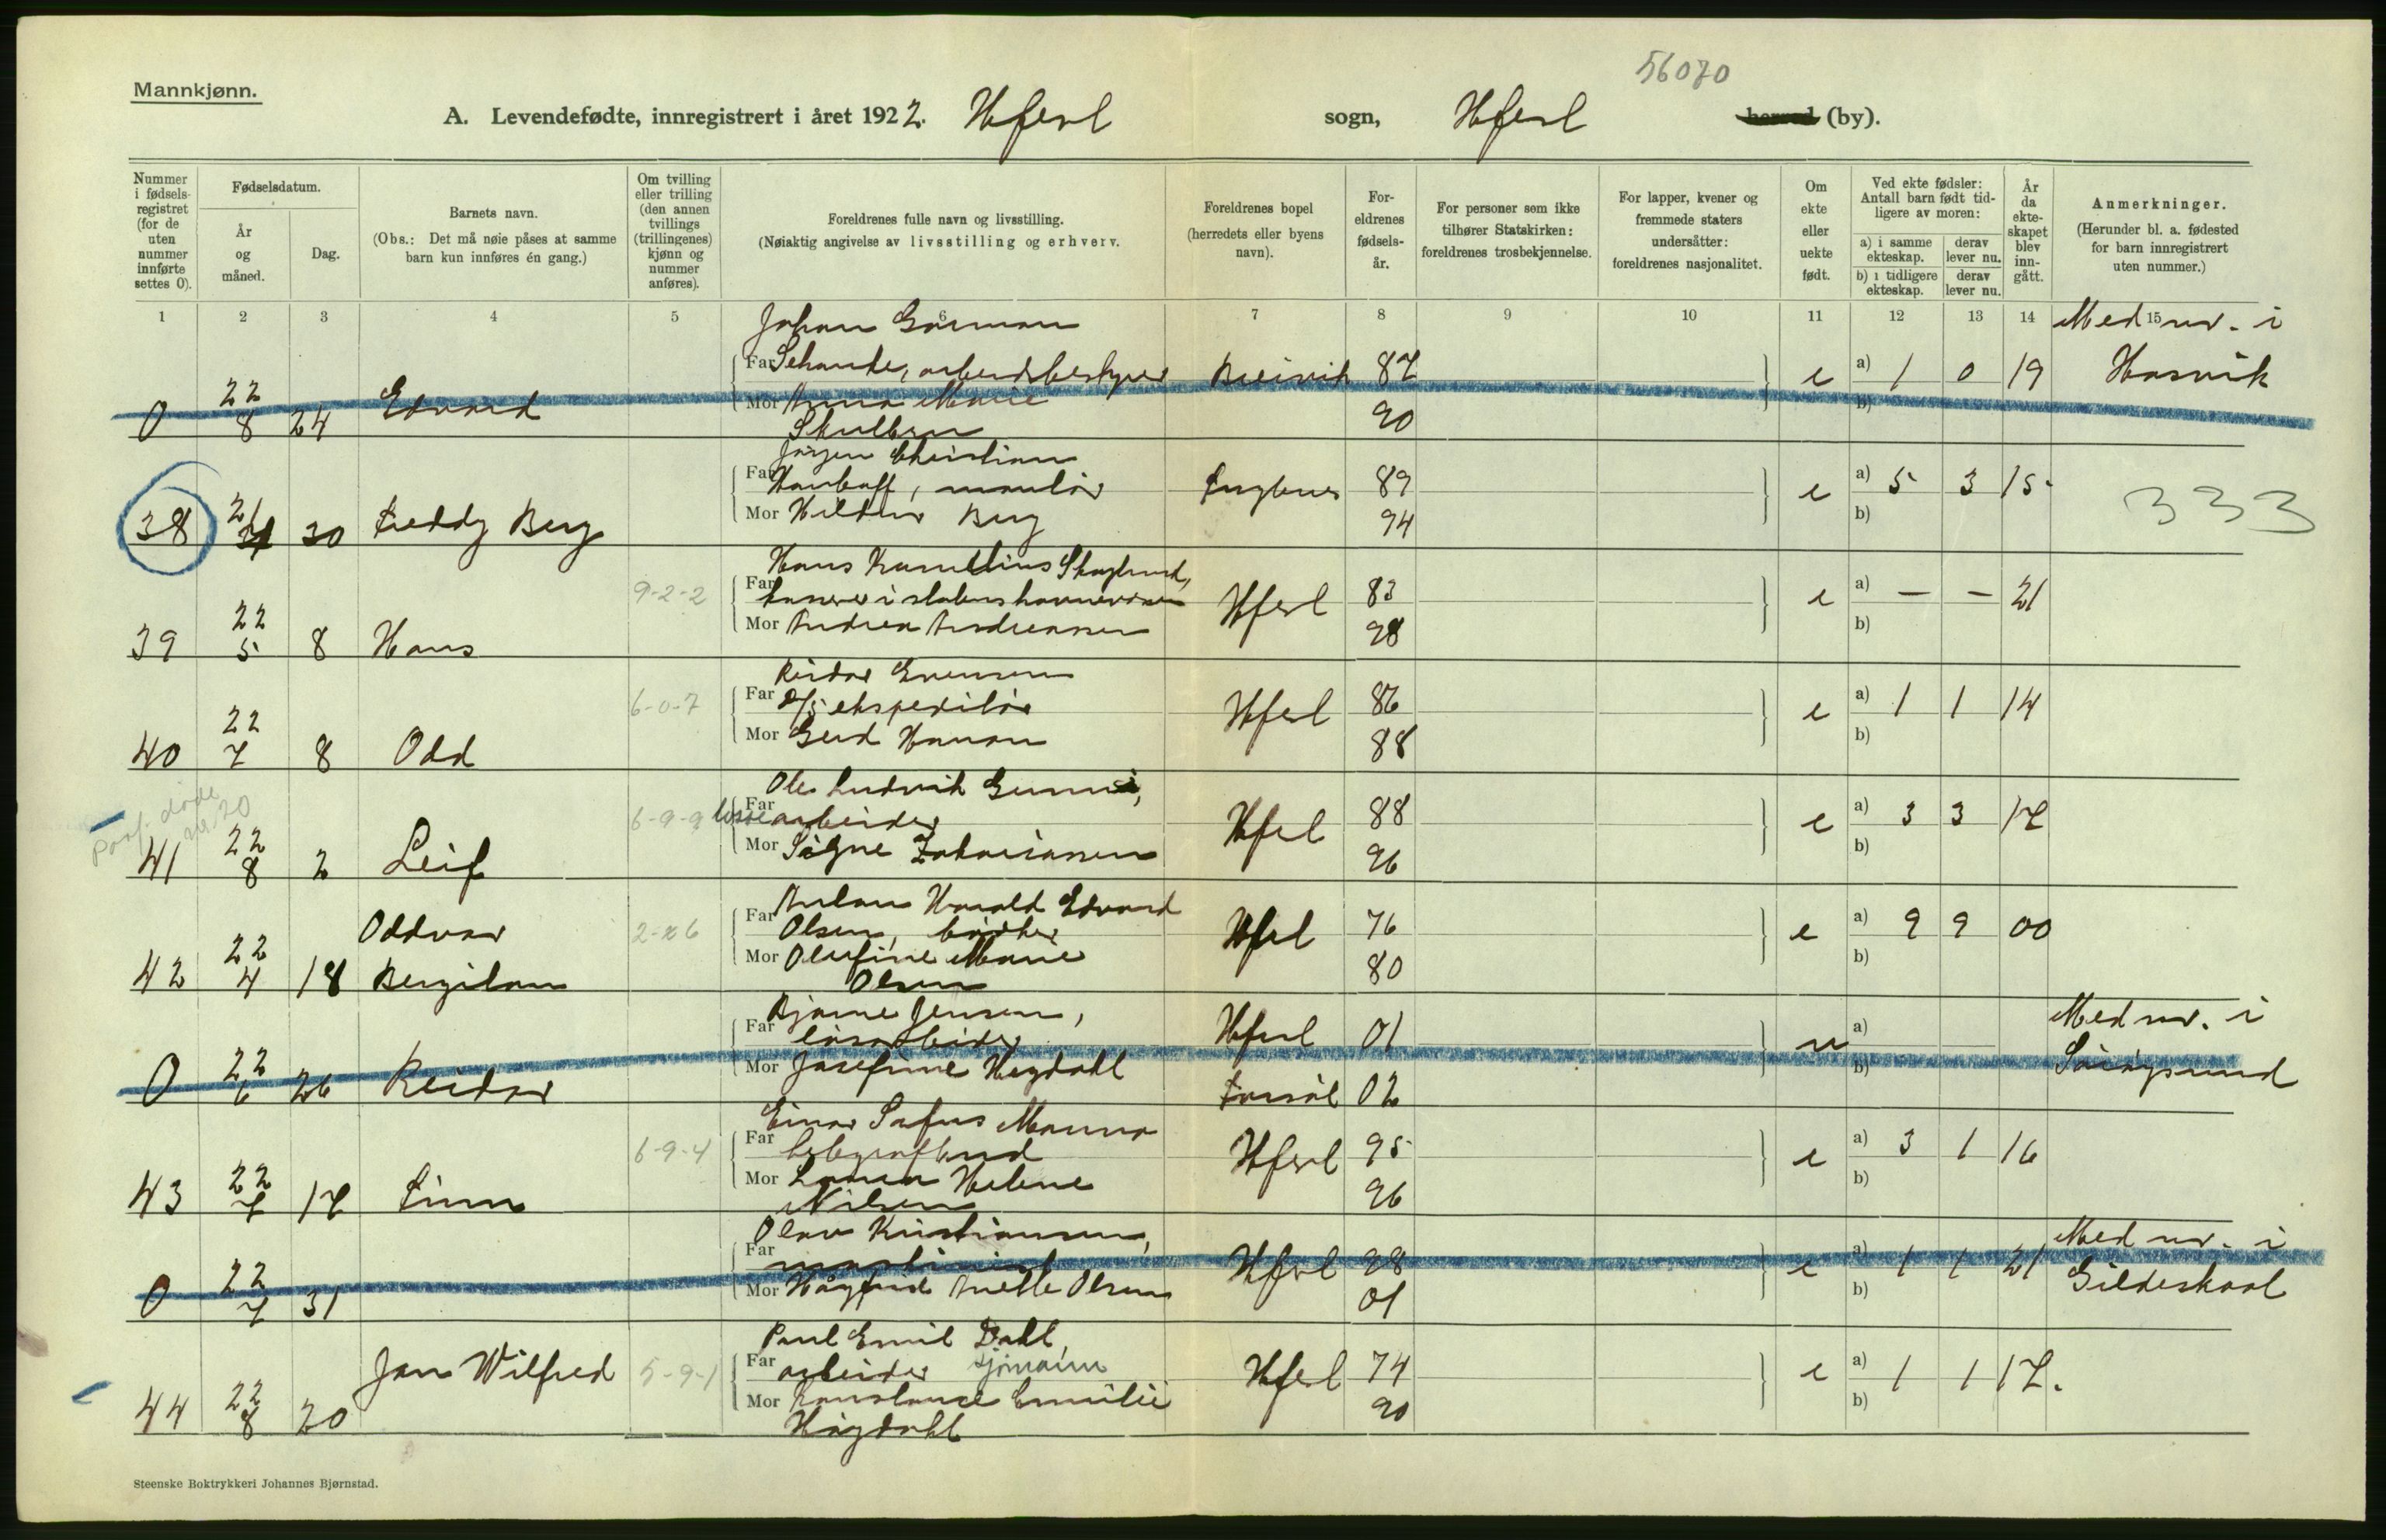 56070
Mannkjønn.
A. Levendefødte, innregistrert i året 1922. Hfest sogn, Hfest herred (by).
Nummer i fødselsregistret (for de uten nummer innførte settes 0).
Fødselsdatum.
År og måned.
Dag.
Barnets navn.
(Obs.: Det må nøie påses at samme barn kun innføres én gang.)
Om tvilling eller trilling (den annen tvillings (trillingenes) kjønn og nummer anføres).
Foreldrenes fulle navn og livsstilling.
(Nøiaktig angivelse av livsstilling og erhverv.
Foreldrenes bopel (herredets eller byens navn).
Foreldrenes fødselsår.
For personer som ikke tilhører Statskirken: foreldrenes trosbekjennelse.
For lapper, kvener og fremmede staters undersåtter: foreldrenes nasjonalitet.
Om ekte eller uekte født.
Ved ekte fødsler: Antall barn født tidligere av moren:
a) i samme ekteskap.
derav lever nu.
b) i tidligere ekteskap.
derav lever nu.
År da ekteskapet blev inngått.
Anmerkninger.
(Herunder bl. a. fødested for barn innregistrert uten nummer.)
1 2 3 4 5 6 7 8 9 10 11 12 13 14 15
Johan Gorman Med nr. i
Far 87 e a) 1 0 19 Hasvik
0 22/8 24 Edvard Mor Anna Marie 90 b)
Jørgen Christian
Far 89 e a) 5 3 15 333
38 30 Freddy Berg Mor Berg 94 b)
Hans
9-2-2 Far Hfest 83 e a) — — 21
39 22/5 8 Hans Mor Andrea Andreassen 98 b)
Reidar Evensen
6-0-7 Far D/S ekspeditør Hfest 86 e a) 1 1 14
40 22/7 8 Odd Mor Gerd Hanson 88 b)
døde nr 20
Ole Ludvik
6-9-9 Far arbeider Hfest 88 e a) 3 3 17
41 22/8 2 Leif Mor Signe Zakariassen 96 b)
Harald Edvard
Oddvar Far Olsen, Hfest 76 e a) 9 9 00
42 22/4 18 Mor Olufine Marie 80 b)
Olsen
Bjarne Jensen, Med nr. i
Far løsarbeider Hfest 01 u a) Sørøysund
0 22/6 26 Reidar Mor Josefine Hegdahl 02 b)
Einar Sofus
6-9-4 Far Hfest 95 e a) 3 1 16
43 22/7 17 Finn Mor Helene 96 b)
Nilsen
Olav Kristiansen, Med nr. i
Far maskinist Hfest 98 e a) 1 1 21 Gildeskaal
0 22/7 31 Mor Olsen 01 b)
Paul Emil Dahl,
Jan Wilfred 5-9-1 Far arbeider sjømann Hfest 74 e a) 1 1 17.
44 22/8 20 Mor Konstanse Emilie 90 b)
Høgdahl
Steenske Boktrykkeri Johannes Bjørnstad.